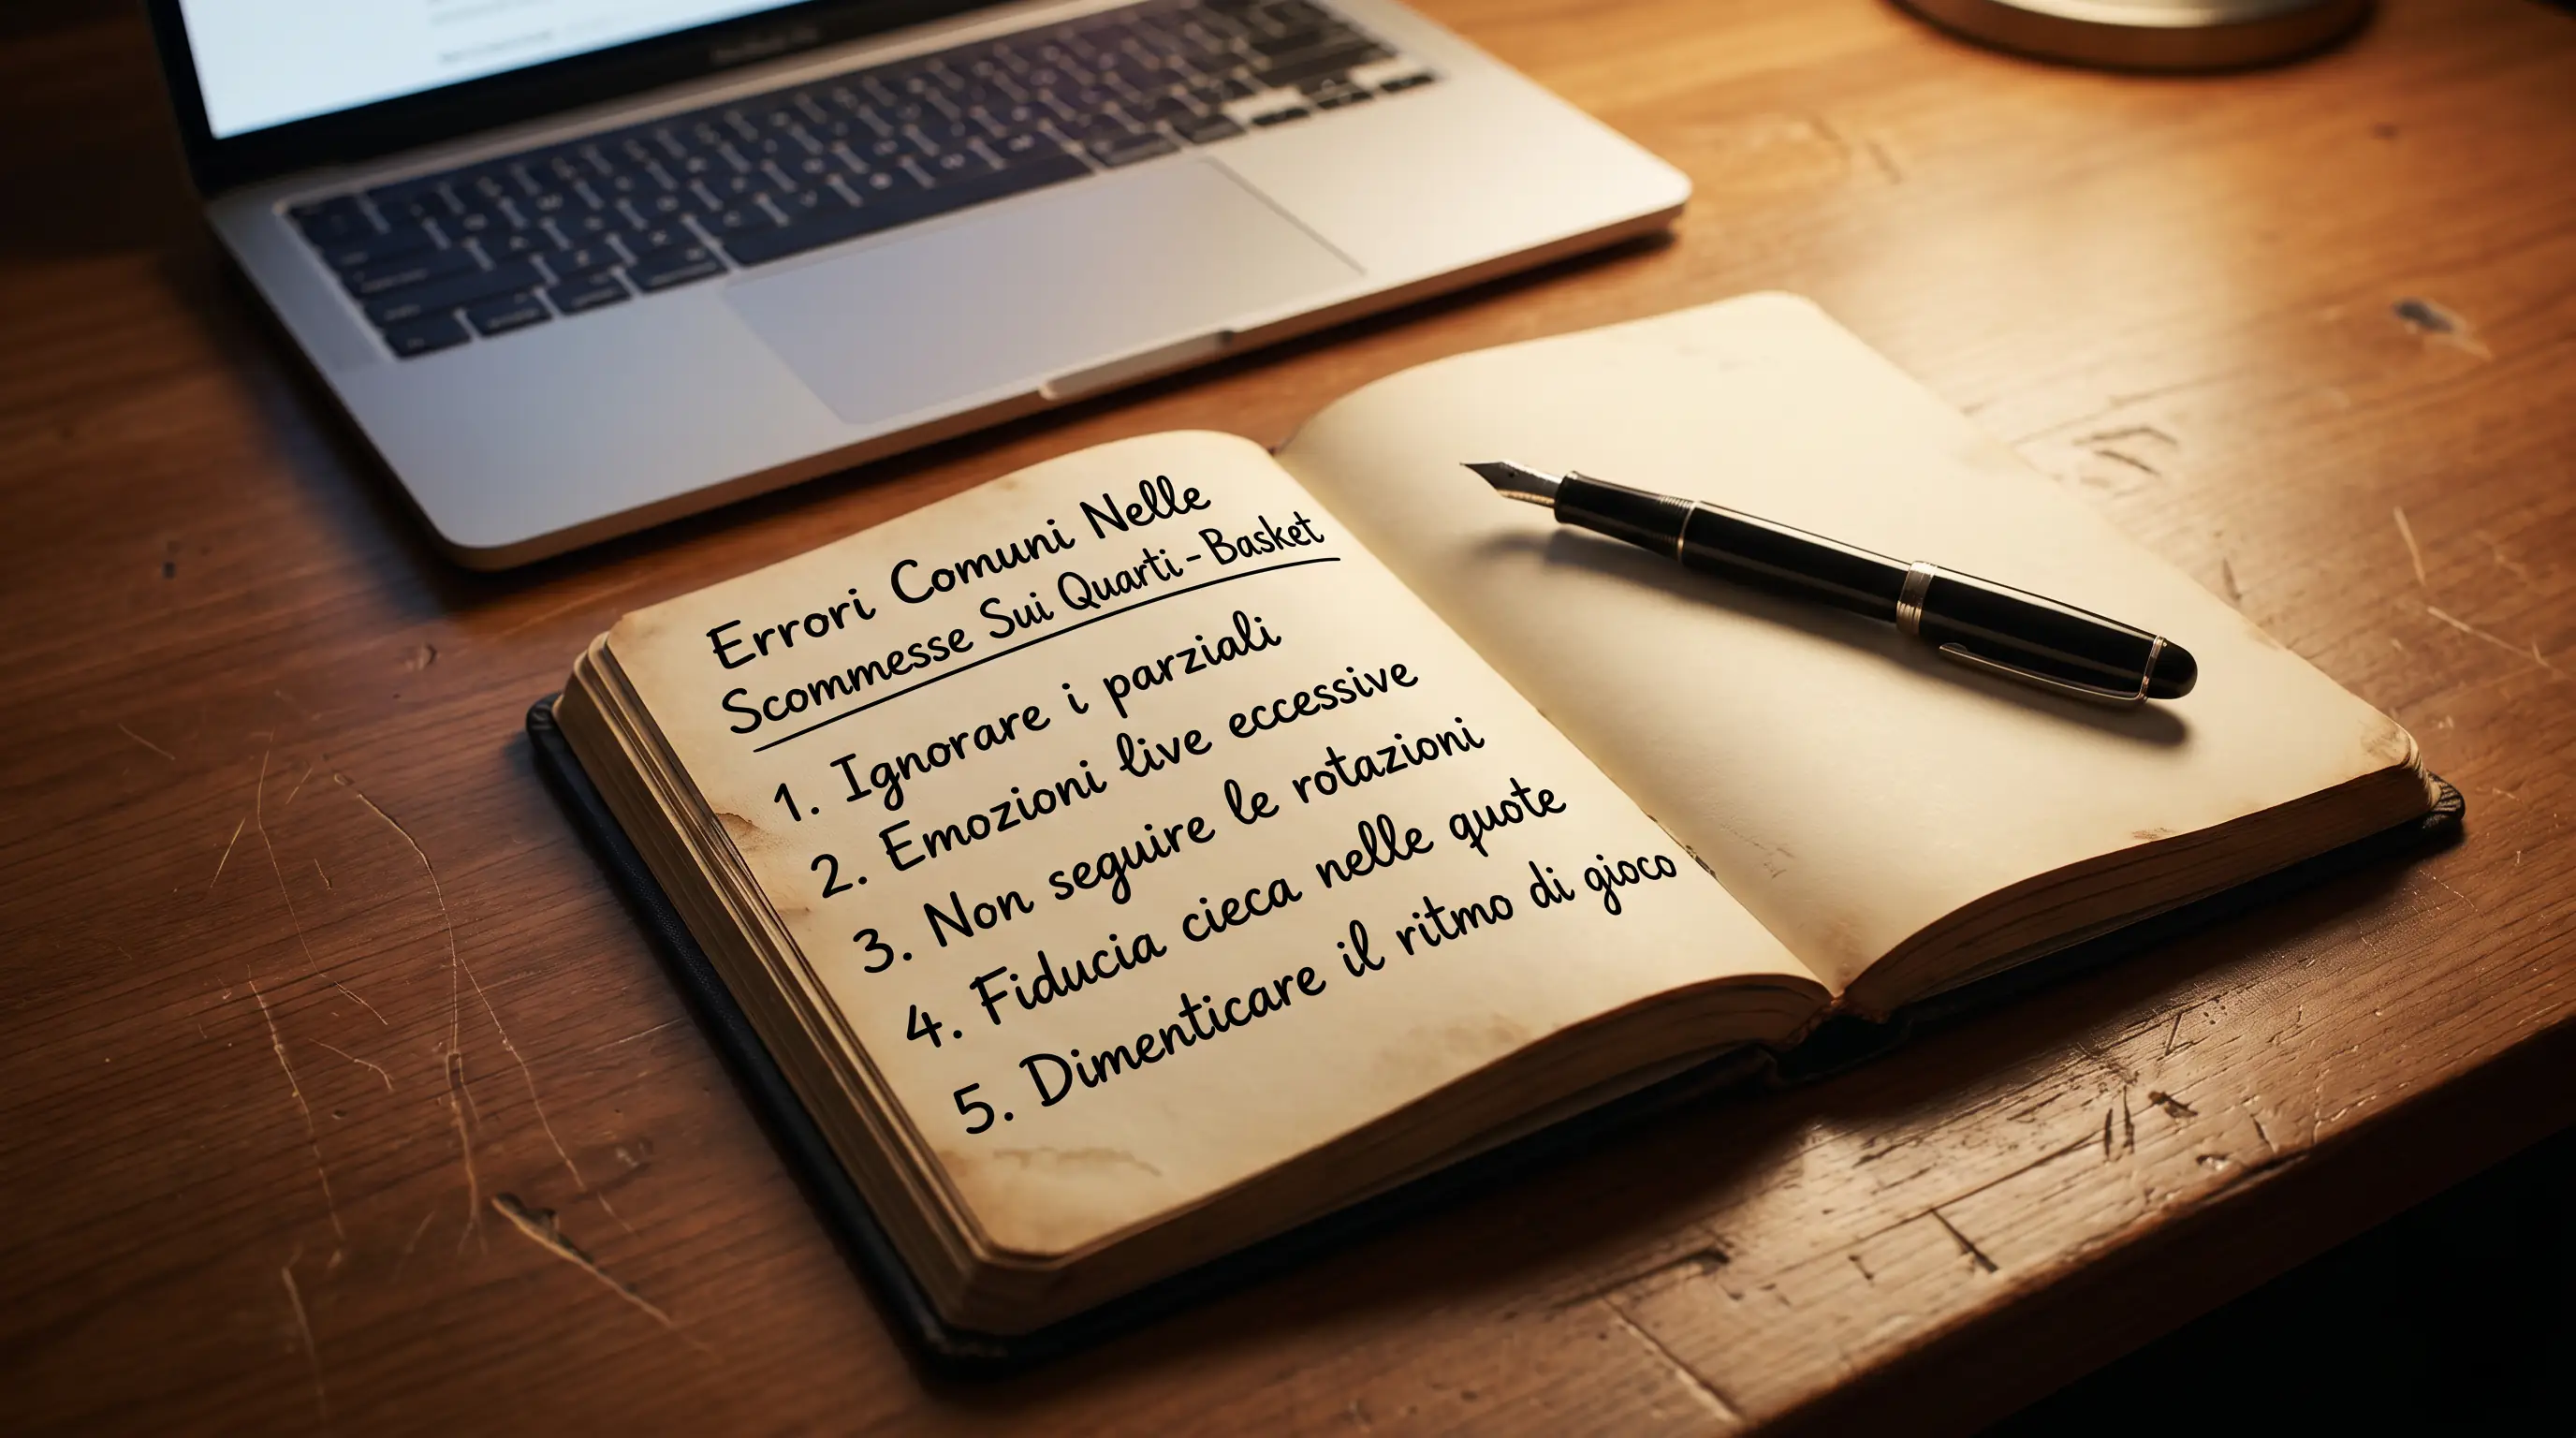 Errori Comuni Nelle
Scommesse Sui Quarti-Basket
1. Ignorare i parziali
2. Emozioni live eccessive
3. Non seguire le rotazioni
4. Fiducia cieca nelle quote
5. Dimenticare il ritmo di gioco